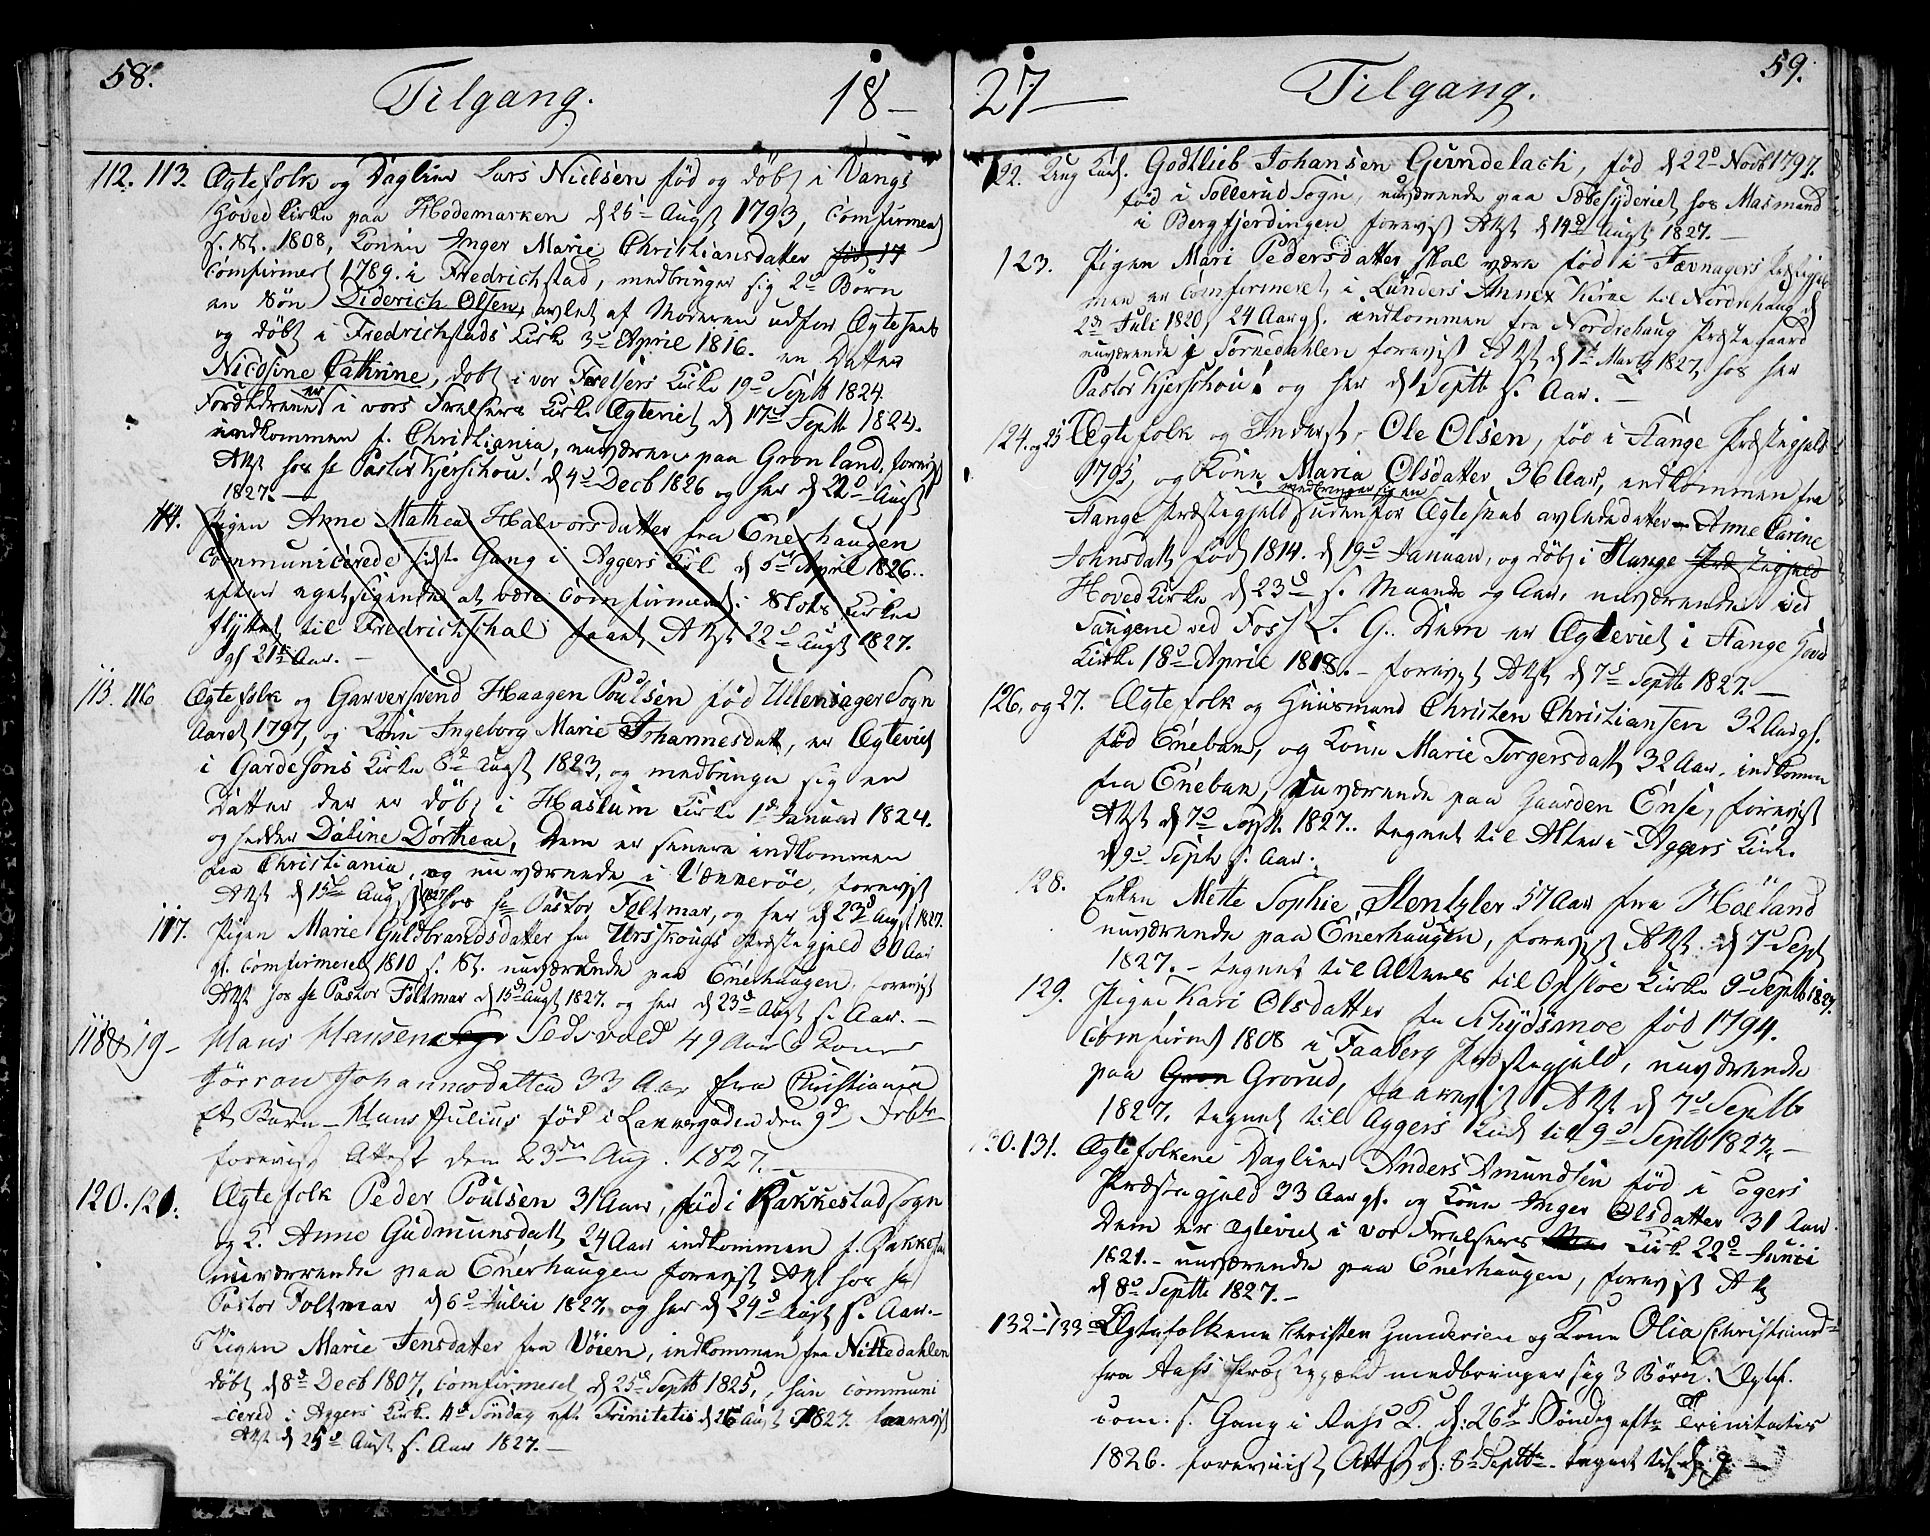 58.
Tilgang.
18-
112. 113. Ægtefolk og Dagliner Lars Nielsen fød og døbt i Vangs
Hovedkirke paa Hedemarken d 25 Augst 1793, Comfirmered
s. St. 1808, Konen Inger Marie Christiansdatter fød 17
Comfirmert 1789. i Fredrichstad, medbringer sig 2 Børn
en Søn Diderich Olsen, avlet af Moderen udfor Ægteskab
og døbt i Fredrichstads Kirke 3 April 1816. en Datter
Nicosine Cathrine, døbt i vor Frelsers Kirke 19 Septb 1824.
er i vors Frelsers Kirke Ægteviet d 17 Septb 1824.
indkommen f. Christiania, nuværen paa Grønland, forevist
Attst hos hr Pastor Kjerschou! d 4 Decb 1826 og her d 22 Augst
1827. —
114. Pigen Anne Mathea Halvorsdatter fra Enerhaugen
Communicerede sidste Gang i Aggers Kirke d 5 April 1826..
efter eget sigende at være Comfirmered i Slots Kirken
flyttet til Fredrichshal faaet Attst 22 Augst 1827.
gl 21 Aar. —
115. 116 Ægtefolk og Garversvend Haagen Poulsen fød Ullensager Sogn
Aaret 1797, og Kone Ingeborg Marie Johannesdatt, er Ægteviet
i Gardesons Kirke 8 Augst 1823, og medbringer sig en
Datter der er døbt i Haslum Kirke 1 Januar 1824.
og hedder Daline Dorthea, Dem er senere indkommen
fra Christiania, og nuværende i Vænnerøe, forevist
Attst d 15 Augst 1827 hos hr Pastor Foltmar, og her d 23 Augst 1827.
117. Pigen Marie Guldbrandsdatter fra Urskougs Præstegjeld 30 Aar
gl. Comfirmeret 1810 s. St. nuværende paa Enerhaugen, forevist
Attst hos hr Pastor Foltmar d 15 Augst 1827. og her d 23 Augst s. Aar. —
118 & 19- Hans Hansen Sedsvold 49 Aar & Kone
Jörran Johannesdatter 33 Aar fra Christiania
Et Barn - Hans Julius fød i den 9d Febr
forevist Attest den 23de Aug. 1827. —
120. 121. Ægtefolk Peder Poulsen 31 Aar, fød i Rakkestad Sogn
og K. Anne Gudmunsdatt 24 Aar indkommen f. Rakkestad
nuværende paa Enerhaugen forevist Attst hos hr
Pastor Foltmar d 6 Julii 1827, og her d 24 Augst s. Aar.-
Pigen Marie Jensdatter fra Vöien, indkommen fra Nittedahlen
døbt d 8 Decb 1807, Comfirmeret d 25 Septb 1825, hun Communi
-cered i Aggers Kirke 4 Søndag eft Trinitatis d 26 Augst 1827. forevist
Attst d 25 Augst s. Aar 1827. —
27 —
Tilgang.
59.
122. Ung Karl. Godtlieb Johansen Gundelach, fød d 22 Novb 1797.
fød i Sollerud Sogn, nuværende paa Sæbesyderiet hos Masmand
i Bergfjerdingen forevist Attst d 14 Augst 1827. —
123. Pigen Mari Pedersdatter skal være fød i Jævnagers Præstegjeld
men er Comfirmeret i Lunders Annex Kirke til Nordrehaug d
23 Juli 1820, 24 Aar gl. indkommen fra Nordrehaug Præstegaard
nuværende i Tørnedahlen forevist Attst d 1 Marts 1827, hos her
Pastor Kjerschou! og her d 1 Septb s. Aar. —
124. og 25 Ægtefolk og Inderst, Ole Olsen, fød i Stange Præstegjeld
1795, og Kone Maria Olsdatter 36 Aar, indkommen fra
medbringer sig en
Stange Præstegjeld udenfor Ægteskab avlede datter - Anne Carine
Johnsdatt fød 1814. d 19 Januar, og døbt i Stange Præstegjeld
Hoved Kirke d 23 s. Maaned og Aar, nuværende ved
Saugene ved Foss L. G. Dem er Ægteviet i Stange Hoved
Kirke 18 April 1818. - forevist Attst d 7 Septb 1827. —
126, og 27. Ægtefolk og Huusmand Christen Christiansen 32 Aar gl.
fød Eneban, og Kone Marie Torgersdatt 32 Aar, indkommen
fra Eneban, nuværende paa Gaarden Ense, forevist
Attst d 7 Septb. 1827.. tegnet til Alters i Aggers Kirke
d 9 Septb s. Aar.
128. Enken Mette Sophie Stentzler 57 Aar fra Höeland
nuværende paa Enerhaugen, forevist Attst d 7 Sept
1827. - tegnet til Alters til Opsloe Kirke 9 Septb 1827.
129. Pigen Kari Olsdatter fra Schydsmoe fød 1794.
Comfirmed 1808 i Faaberg Præstegjeld, nuværende
paa Gron Grorud, forevist Attst d 7 Septb
1827. tegnet til Aggers Kirke til 9 Septb 1827. —
130. 131. Ægtefolkene Dagliner Anders Amundsen fød i Egers
Præstegjeld 33 Aar gl. og Kone Inger Olsdatter 31 Aar
Dem er Ægteviet i vor Frelsers Kirke 22 Junii
1821. - nuværende paa Enerhaugen, forevist Attst
d 8 Septb 1827. —
132-133 Ægtefolkene Christen Gundersen og Kone Olia Christiansd-
fra Aahs Præstegjæld medbringer sig 3 Børn. Ægtf.
com: s. Gang i Aahs K. d: 26 Søndag efter Trinitatis
1826. foreviist Attst d: 8 Septbr. tegnet til d 9 —